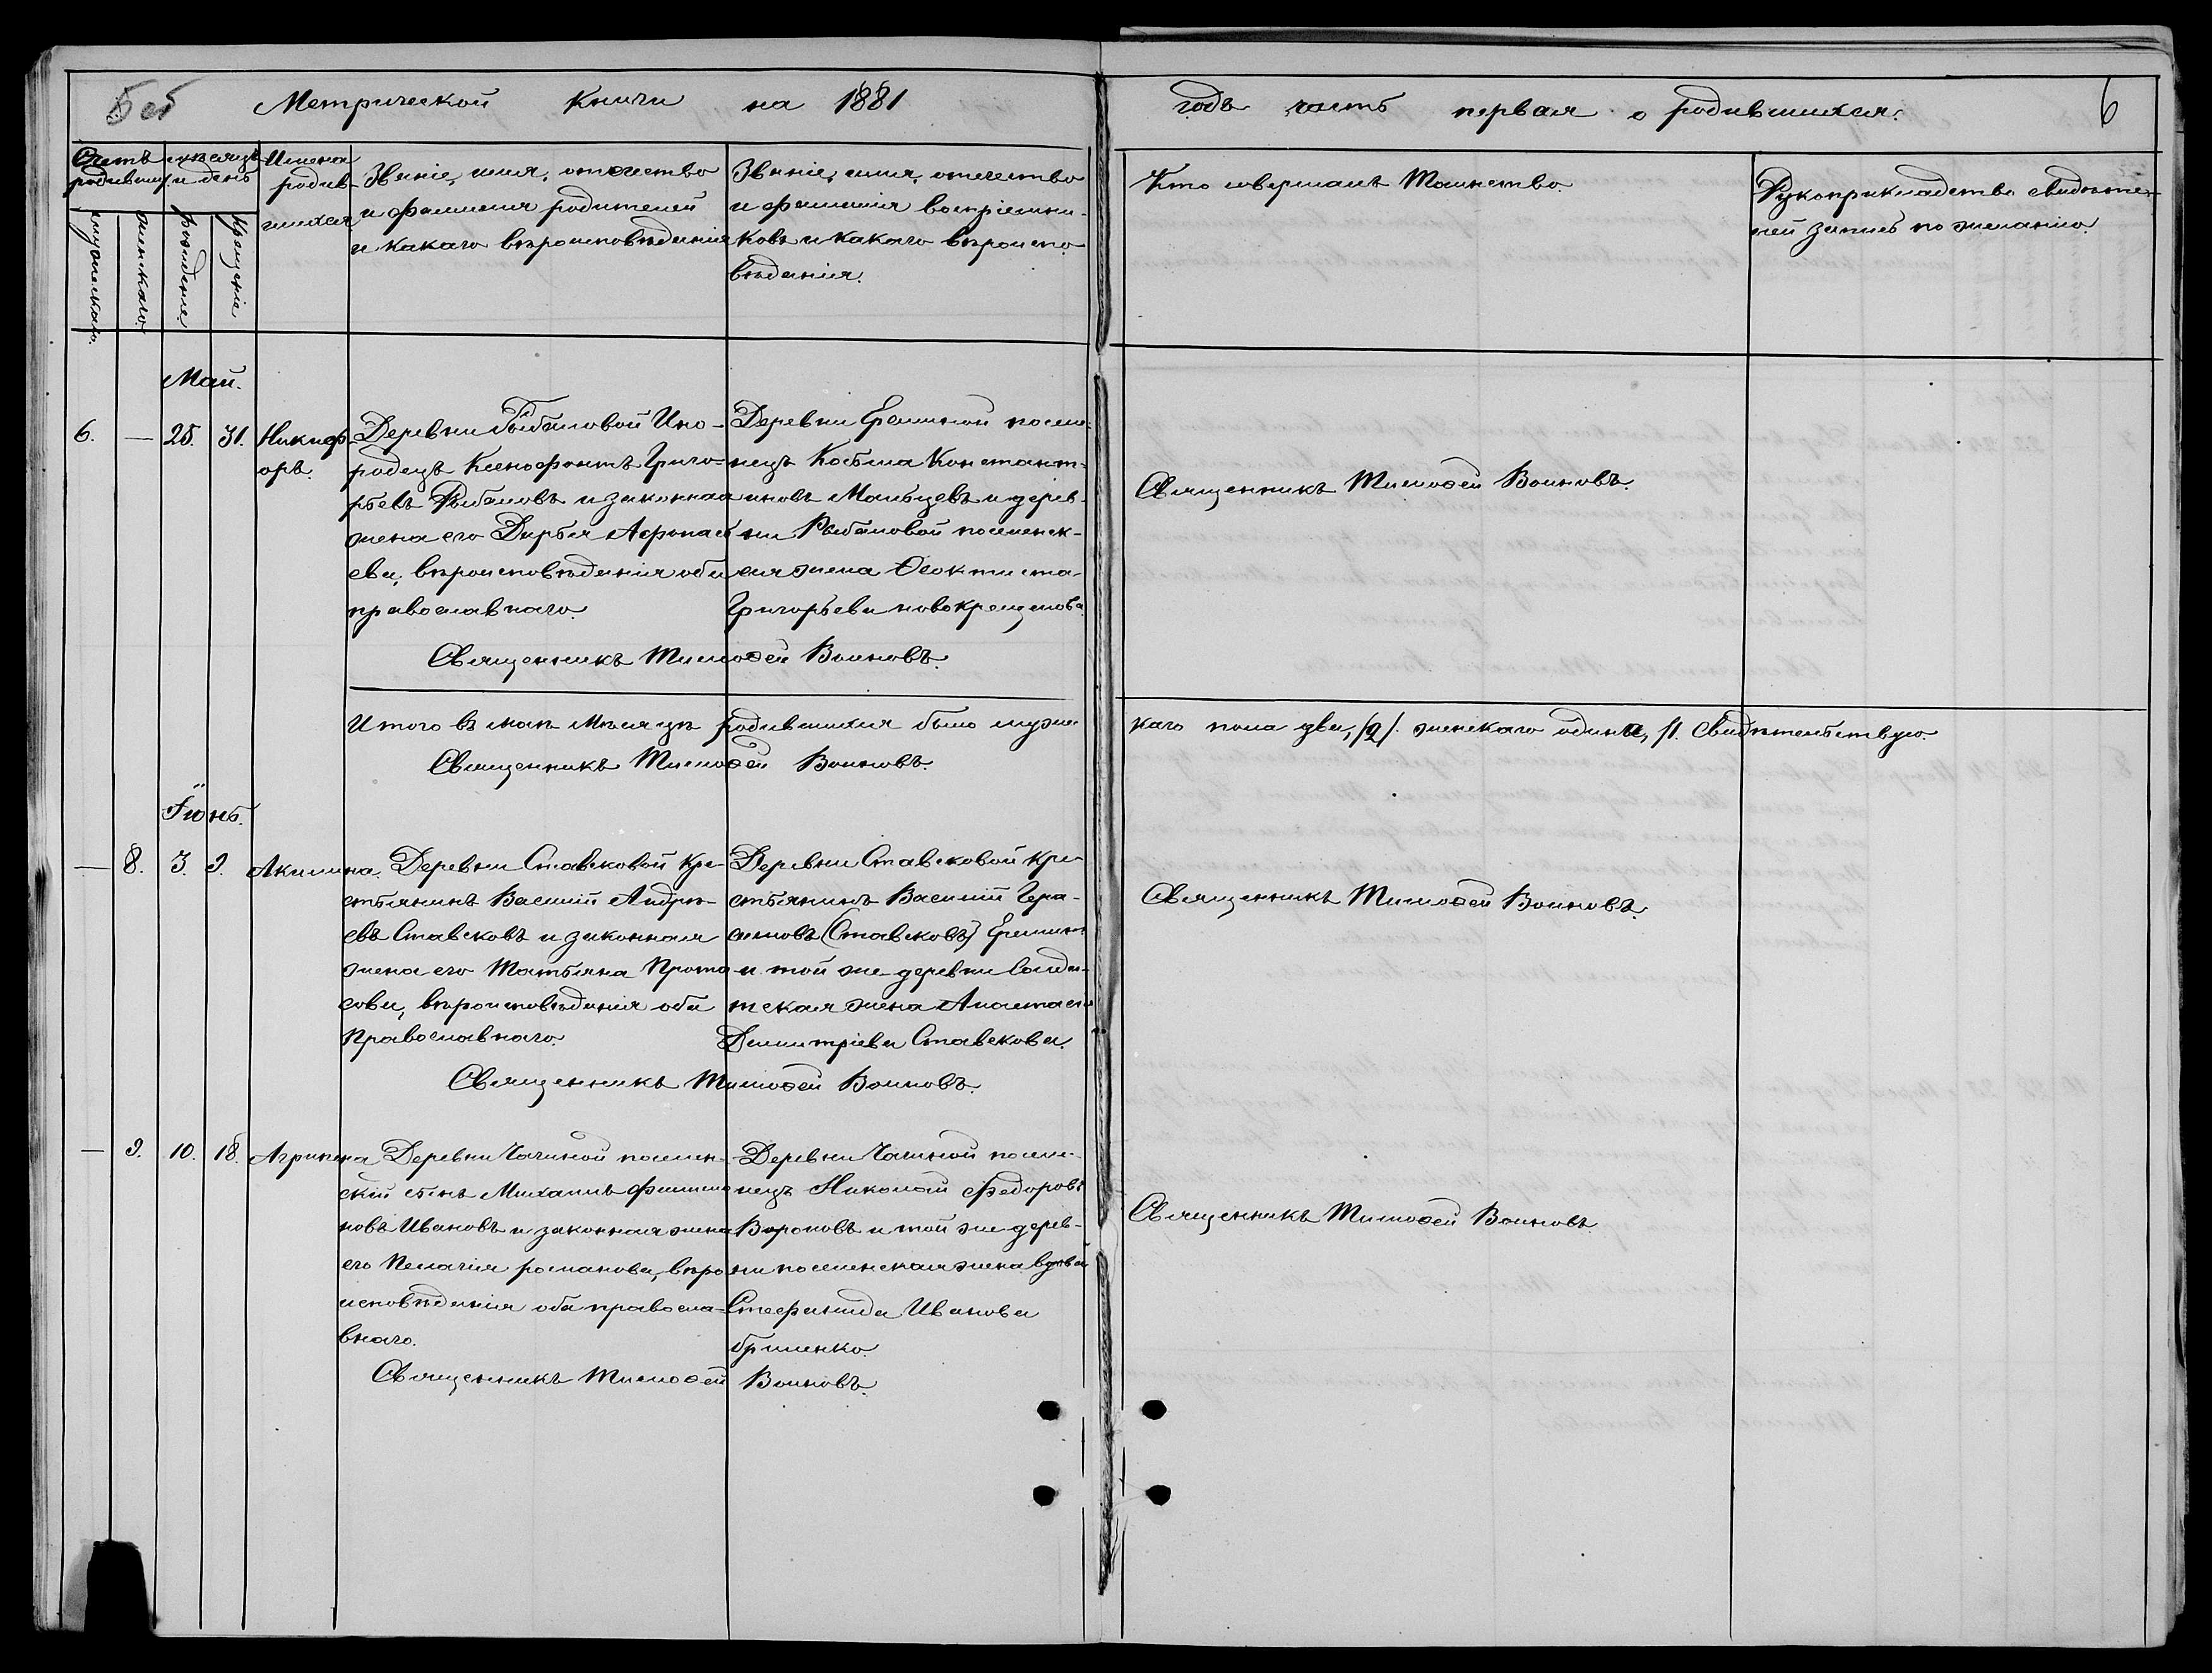 Метрической Книги на 1881 годъ часть первая о родившихся. 6
Счетъ родившихъ
мужескаго.
женскаго.
мѣсяцъ и день
рожденіе.
Крещеніе
Имена
родив-
шихся
Званіе, имя, отчество
и фамилія родителей
и какаго вѣроисповѣданія
Званіе, имя, отчество
и фамилія воспріемни-
ковъ и какаго вѣроиспо-
вѣданія.
Кто совершалъ Таинство.
Рукоприкладство свидѣте-
лей запись по желанію.
Май.
6. — 25. 31. Никиф-
оръ.
Деревни Рыбаловой Ино-
родецъ Ксенофонтъ Григо-
рьевъ Рыбаловъ и законная
жена его Дарья Афонась
ева, вѣроисповѣданія оба
православнаго.
Деревни Ереминой поселе-
нецъ Козьма Констант-
иновъ Мальцевъ и дерев-
ни Рыбаловой поселенск-
ая жена Ѳеоктиста
Григорьева новокрещенова.
Священникъ Тимоѳей Воиновъ.
Священникъ Тимоѳей Воиновъ.
Итого въ маѣ Мѣсяцѣ родившихся было муже
каго пола два, /2/. женскаго одинъ, /1. Свидѣтельствую.
Священникъ Тимоѳей Воиновъ.
Іюнь.
— 8. 3. 9. Акилина.
Деревни Ставсковой Кре-
стьянинъ Василій Андре-
евъ Ставсковъ и законная
жена его Татьяна Прота
сова, вѣроисповѣданія оба
Православнаго.
Деревни Ставсковой Кре-
стьянинъ Василій Гера-
симовъ (Ставсковъ) Еремин
и той же деревни Солда-
тская жена Анастасія
Димитріева Ставскова.
Священникъ Тимоѳей Воиновъ.
Священникъ Тимоѳей Воиновъ.
— 9. 10. 18. Агрипена
Деревни Чагиной поселен-
скій сынъ Михаилъ Филимо
новъ Ивановъ и законная жена
его Пелагія романова, вѣро
исповѣданія оба правосла-
внаго.
Деревни Чагиной поселе-
нецъ Николай Федоровъ
Вороновъ и той же дерев-
ни поселенская жена вдовы
Стефанида Иванова
Священникъ Тимоѳей Воиновъ.
Священникъ Тимоѳей Воиновъ.